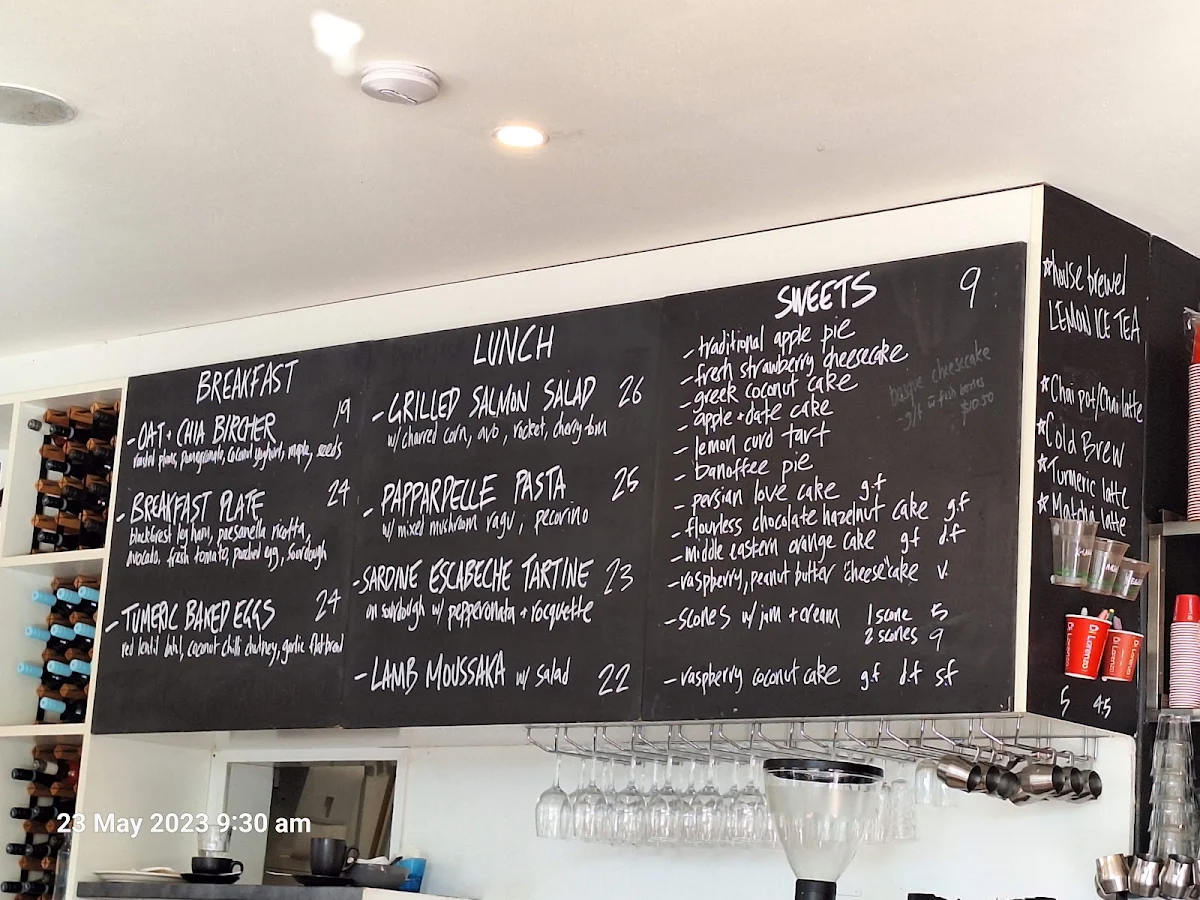 BREAKFAST
- OAT + CHIA BIRCHER 19
roasted plums, pomegranate, coconut yoghurt, maple, seeds
- BREAKFAST PLATE 24
blackforest leg ham, paesanella ricotta,
avocado, fresh tomato, poached egg, sourdough
- TUMERIC BAKED EGGS 24
red lentil dahl, coconut chilli chutney, garlic flatbread
LUNCH
- GRILLED SALMON SALAD 26
w/ charred corn, avo, rocket, cherry-tom
- PAPPARDELLE PASTA 25
w/ mixed mushroom ragu, pecorino
- SARDINE ESCABECHE TARTINE 23
on sourdough w/ pepperonata + rocquette
- LAMB MOUSSAKA w/ salad 22
SWEETS 9
- traditional apple pie
- fresh strawberry cheesecake
- greek coconut cake
- apple + date cake
- lemon curd tart
- banoffee pie
- persian love cake g.f
- flourless chocolate hazelnut cake g.f
- middle eastern orange cake g.f d.f
- raspberry, peanut butter "cheese"cake v.
- scones w/ jam + cream 1 scone 5
2 scones 9
- raspberry coconut cake g.f d.f s.f
basque cheesecake
- g/f w fresh berries
$10.50
☆ house brewed
LEMON ICE TEA
☆ Chai pot/Chai latte
☆ Cold Brew
☆ Turmeric latte
☆ Matcha latte
Di Lorenzo
Di Lorenzo
5 4.5
23 May 2023 9:30 am